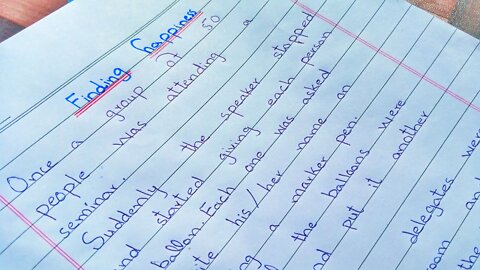 Finding happiness
Once a group of 50
people was attending a
seminar.
Suddenly the speaker stopped
and started giving each person
balloon. Each one was asked
his/her name on
a marker pen.
the balloons were
put it another
delegates were